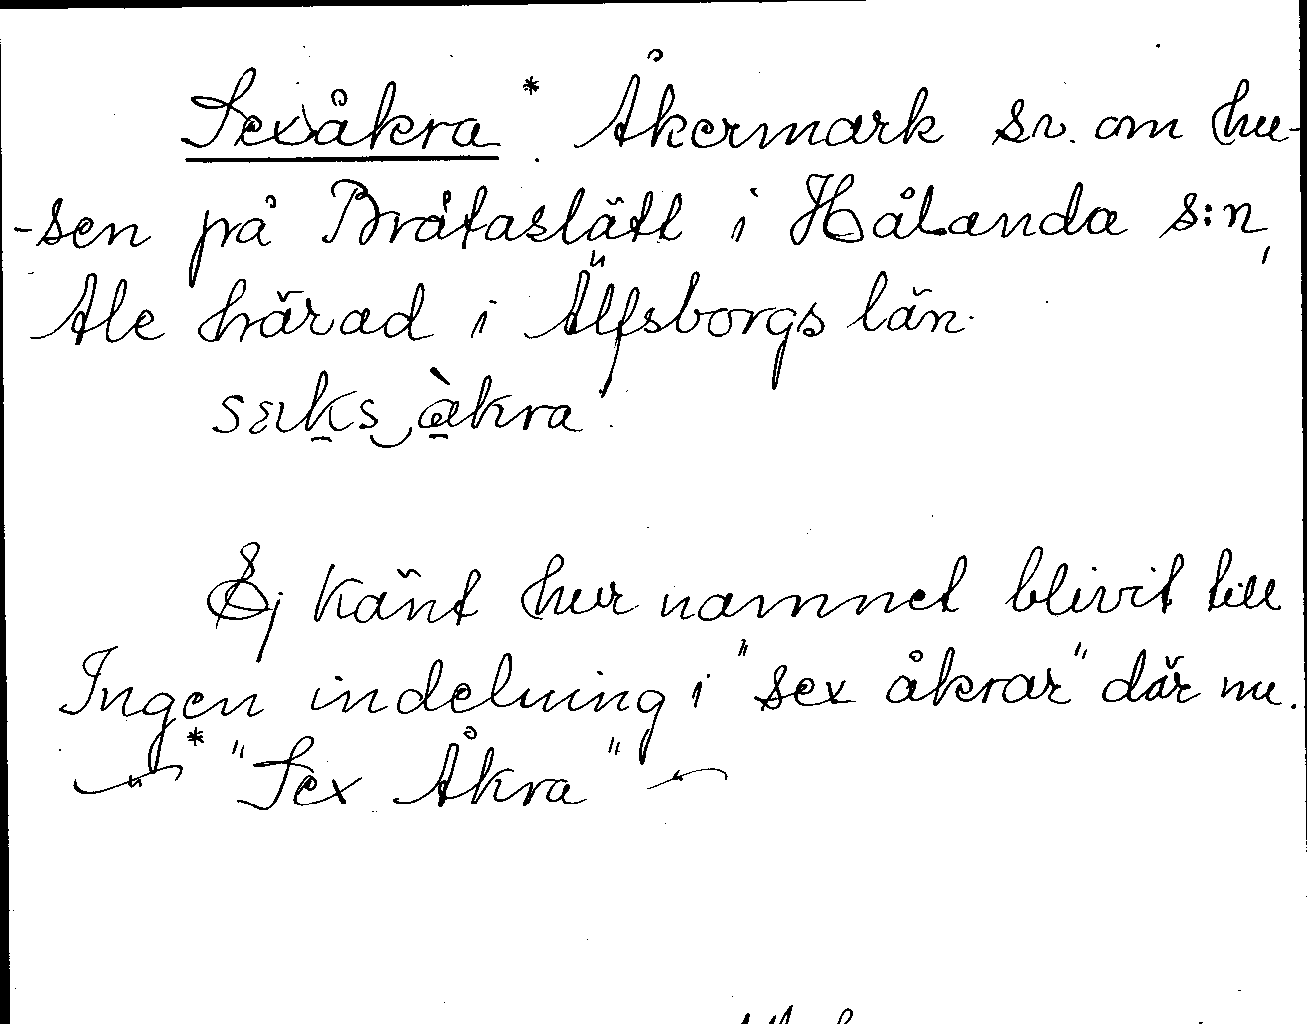 Sexåkra * Åkermark sv. om hu-
-sen på Bråtaslätt i Hålanda s:n,
Ale härad i Älfsborgs län.
Ej känt hur namnet blivit till
Ingen indelning i "sex åkrar" där nu.
* "Sex Åkra"